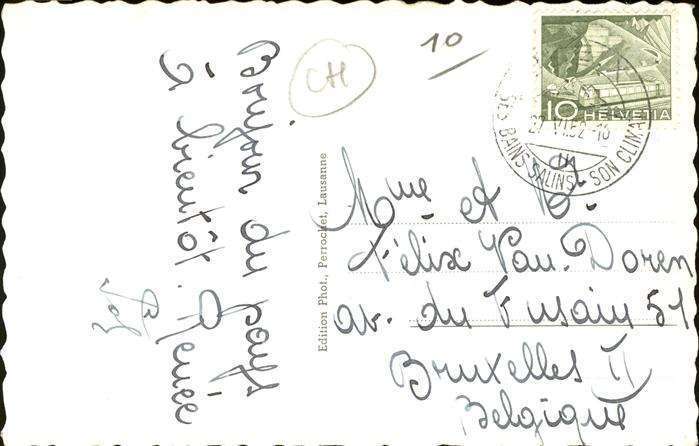 Bonjour du pays
à bientôt. Renée
CH
10
10 HELVETIA
27.VI.52-18
SES BAINS SALINS - SON CLIMAT
Edition Phot., Perrochet, Lausanne
Mme et M.
Félix Van Doren
av. du Fusain 51
Bruxelles II
Belgique